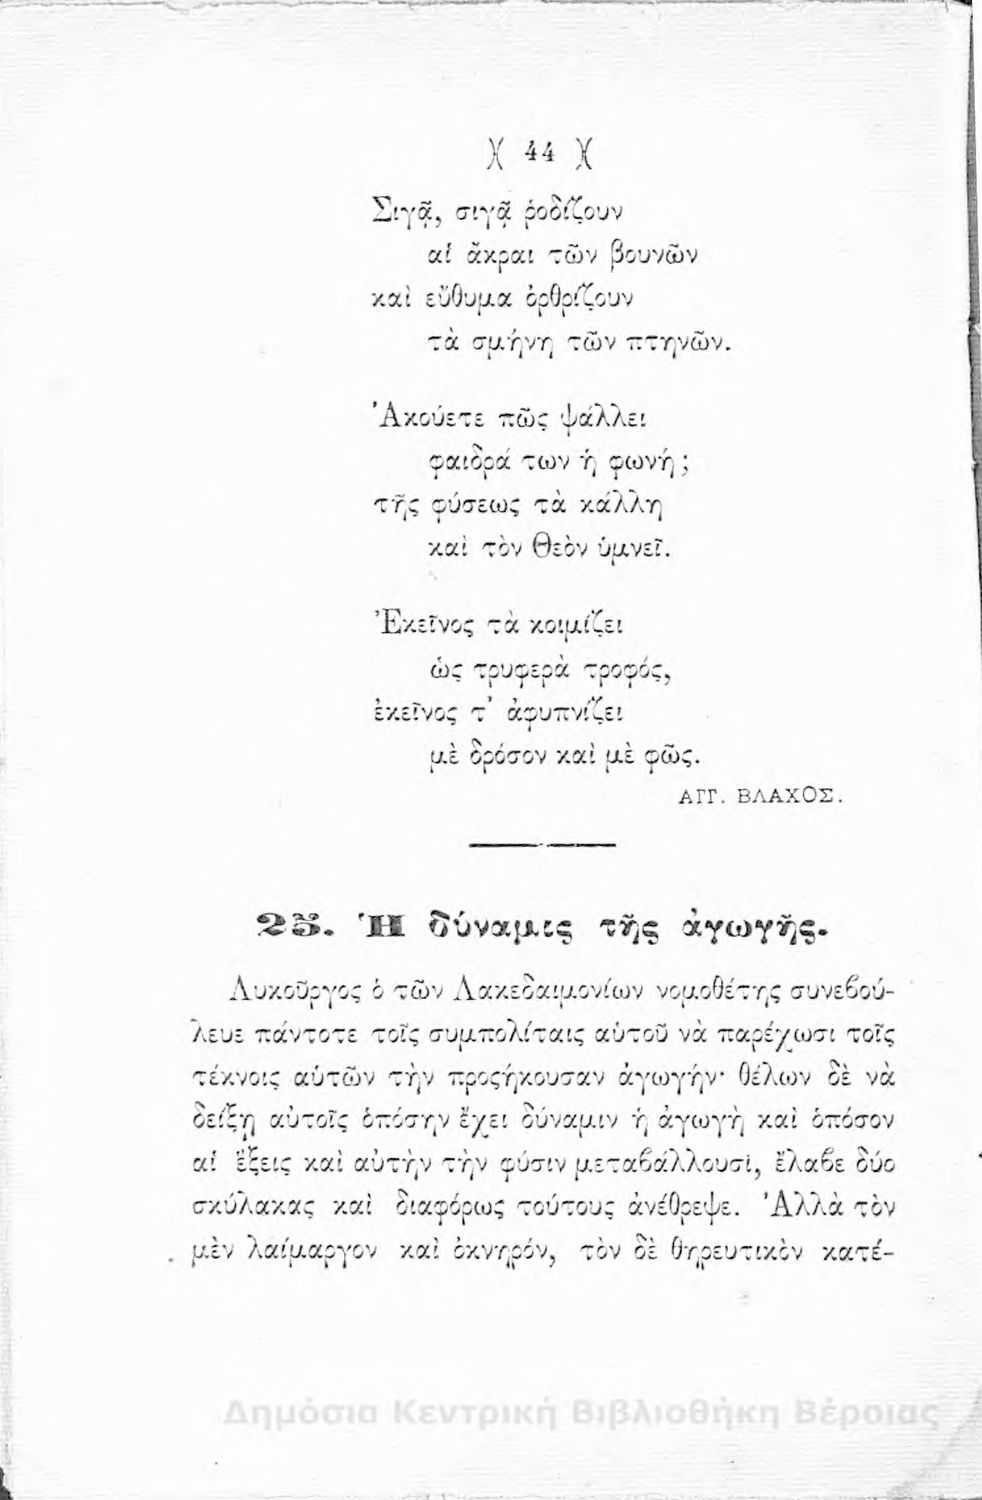 )( 44 )(
Σιγᾷ, σιγᾷ ῥοδίζουν
αἱ ἄκραι τῶν βουνῶν
καὶ εὔθυμα ὀρθρίζουν
τὰ σμήνη τῶν πτηνῶν.
Ἀκούετε πῶς ψάλλει
φαιδρά των ἡ φωνή;
τῆς φύσεως τὰ κάλλη
καὶ τὸν Θεὸν ὑμνεῖ.
Ἐκεῖνος τὰ κοιμίζει
ὡς τρυφερὰ τροφός,
ἐκεῖνος τ' ἀφυπνίζει
μὲ δρόσον καὶ μὲ φῶς.
ΑΓΓ. ΒΛΑΧΟΣ.
25. Ἡ δύναμις τῆς ἀγωγῆς.
Λυκοῦργος ὁ τῶν Λακεδαιμονίων νομοθέτης συνεβού-
λευε πάντοτε τοῖς συμπολίταις αὑτοῦ νὰ παρέχωσι τοῖς
τέκνοις αὑτῶν τὴν προςήκουσαν ἀγωγήν· θέλων δὲ νὰ
δείξῃ αὐτοῖς ὁπόσην ἔχει δύναμιν ἡ ἀγωγὴ καὶ ὁπόσον
αἱ ἕξεις καὶ αὐτὴν τὴν φύσιν μεταβάλλουσι, ἔλαβε δύο
σκύλακας καὶ διαφόρως τούτους ἀνέθρεψε. Ἀλλὰ τὸν
μὲν λαίμαργον καὶ ὀκνηρόν, τὸν δὲ θηρευτικὸν κατέ-
Δημόσια Κεντρική Βιβλιοθήκη Βέροιας